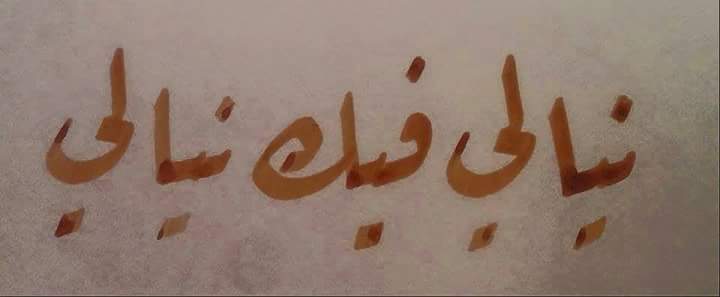 نيالي فيك نيالي